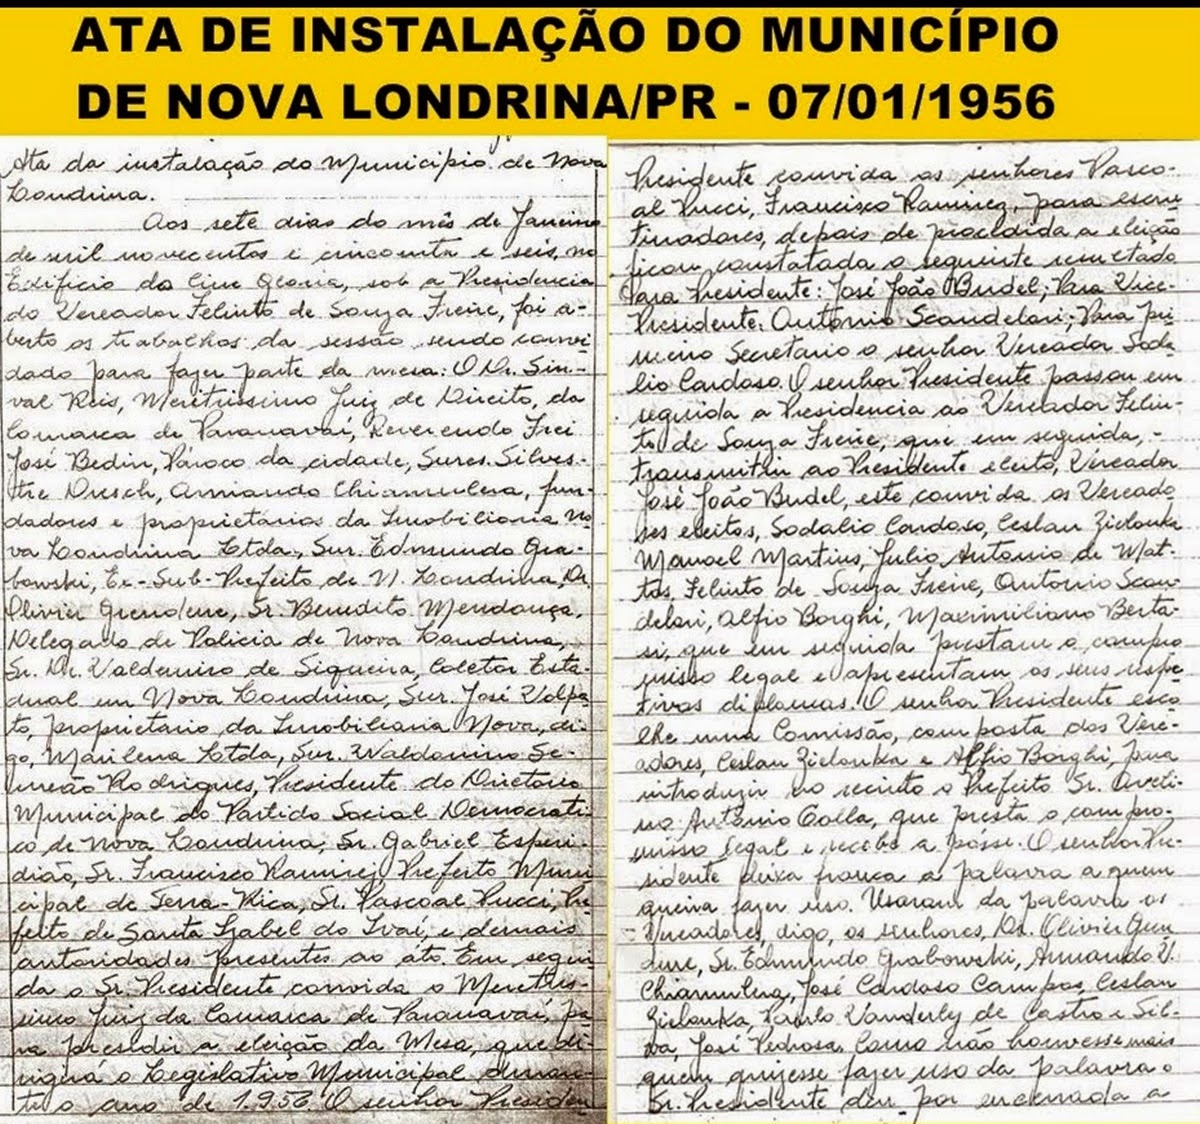 ATA DE INSTALAÇÃO DO MUNICÍPIO
DE NOVA LONDRINA/PR - 07/01/1956
Ata da instalação do Municipio de Nova
Londrina.
Aos sete dias do mês de Janeiro
de mil novecentos e cincoenta e seis, no
Edificio do Cine Gloria, sob a Presidencia
do Vereador Felinto de Souza Freire, foi a-
berto os trabalhos da sessão sendo convi
dado para fazer parte da mesa: O Dr. Sin-
val Reis, Meretrissimo Juiz de Direito, da
Comarca de Paranavaí, Reverendo Frei
José Bedin, Pároco da cidade, Snres. Silves-
tre Dresch, Armando Chiamulera, fun-
dadores e proprietários da Imobiliaria No
va Londrina Ltda, Snr. Edmundo Gra-
bowski, Ex-Sub-Prefeito de N. Londrina, Dr.
Olivier Grendene, Sr. Benedito Mendonça,
Delegado de Policia de Nova Londrina,
Sr. Dr. Valdemiro de Siqueira, Coletor Esta-
dual em Nova Londrina, Snr. José Volpa
to, proprietario da Imobiliaria Nova, di-
go, Marilena Ltda, Snr. Waldomiro Se-
meão Rodrigues, Presidente do Diretório
Municipal do Partido Social Democrati-
co de Nova Londrina, Sr. Gabriel Esperi-
dião, Sr. Francisco Ramirez Prefeito Muni
cipal de Terra-Rica, Sr. Pascoal Pucci, Pre
feito de Santa Izabel do Ivaí, e demais
autoridades presentes ao áto. Em segui-
da o Sr. Presidente convida o Meretris-
simo Juiz da Comarca de Paranavaí, pa
ra presidir a eleição da Mesa, que di-
rigirá o Legislativo Municipal duran-
te o ano de 1.956. O senhor Presiden
Presidente convida os senhores Pasco-
al Pucci, Francisco Ramirez, para escru
tinadores, depois de procedida a eleição
ficou constatada o seguinte resultado
Para Presidente: José João Budel; Para Vice-
Presidente: Antonio Scandelari; Para pri
meiro Secretario o senhor Vereador Soda-
lio Cardoso. O senhor Presidente passou em
seguida a Presidencia ao Vereador Felin-
to de Souza Freire, que em seguida, -
transmitiu ao Presidente eleito, Vereador
José João Budel, este convida os Vereado
res eleitos, Sodalio Cardoso, Ceslau Zielonka
Manoel Martins, Julio Antonio de Mat-
tos, Felinto de Souza Freire, Antonio Scan
delari, Alfio Borghi, Maximiliano Berta-
si, que em seguida prestam o compro
misso legal e apresentam os seus respe-
tivos diplomas. O senhor Presidente esco
lhe uma Comissão, composta dos Vere-
adores, Ceslau Zielonka e Alfio Borghi, para
introduzir no recinto o Prefeito Sr. Aveli-
no Antônio Colla, que presta o compro-
misso legal e recebe a pósse. O senhor Pre-
sidente deixa franca a palavra a quem
queira fazer uso. Usaram da palavra os
Vereadores, digo, os senhores, Dr. Olivier Gren
dene, Sr. Edmundo Grabowski, Armando V.
Chiamulera, José Cardoso Campos, Ceslau
Zielonka, Paulo Vanderley de Castro e Sil-
va, José Pedrosa, Como não houvesse mais
quem quizesse fazer uso da palavra o
Sr. Presidente deu por encerrada a